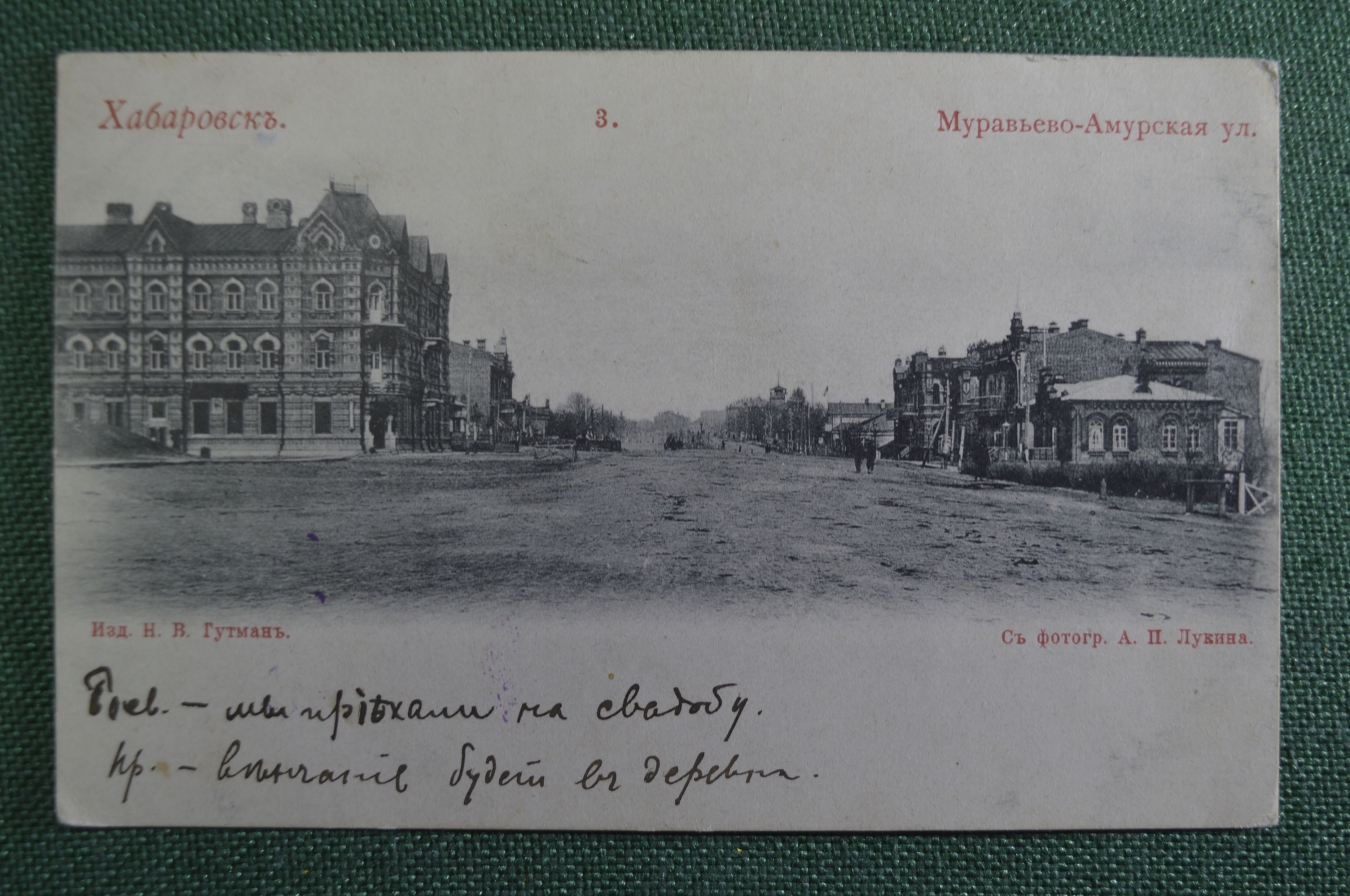 Хабаровскъ.
3.
Муравьево-Амурская ул.
Изд. Н. В. Гутманъ.
Съ фотогр. А. П. Лукина.
– мы пріѣхали на свадьбу.
пр. – вѣнчаніе будетъ въ деревнѣ.